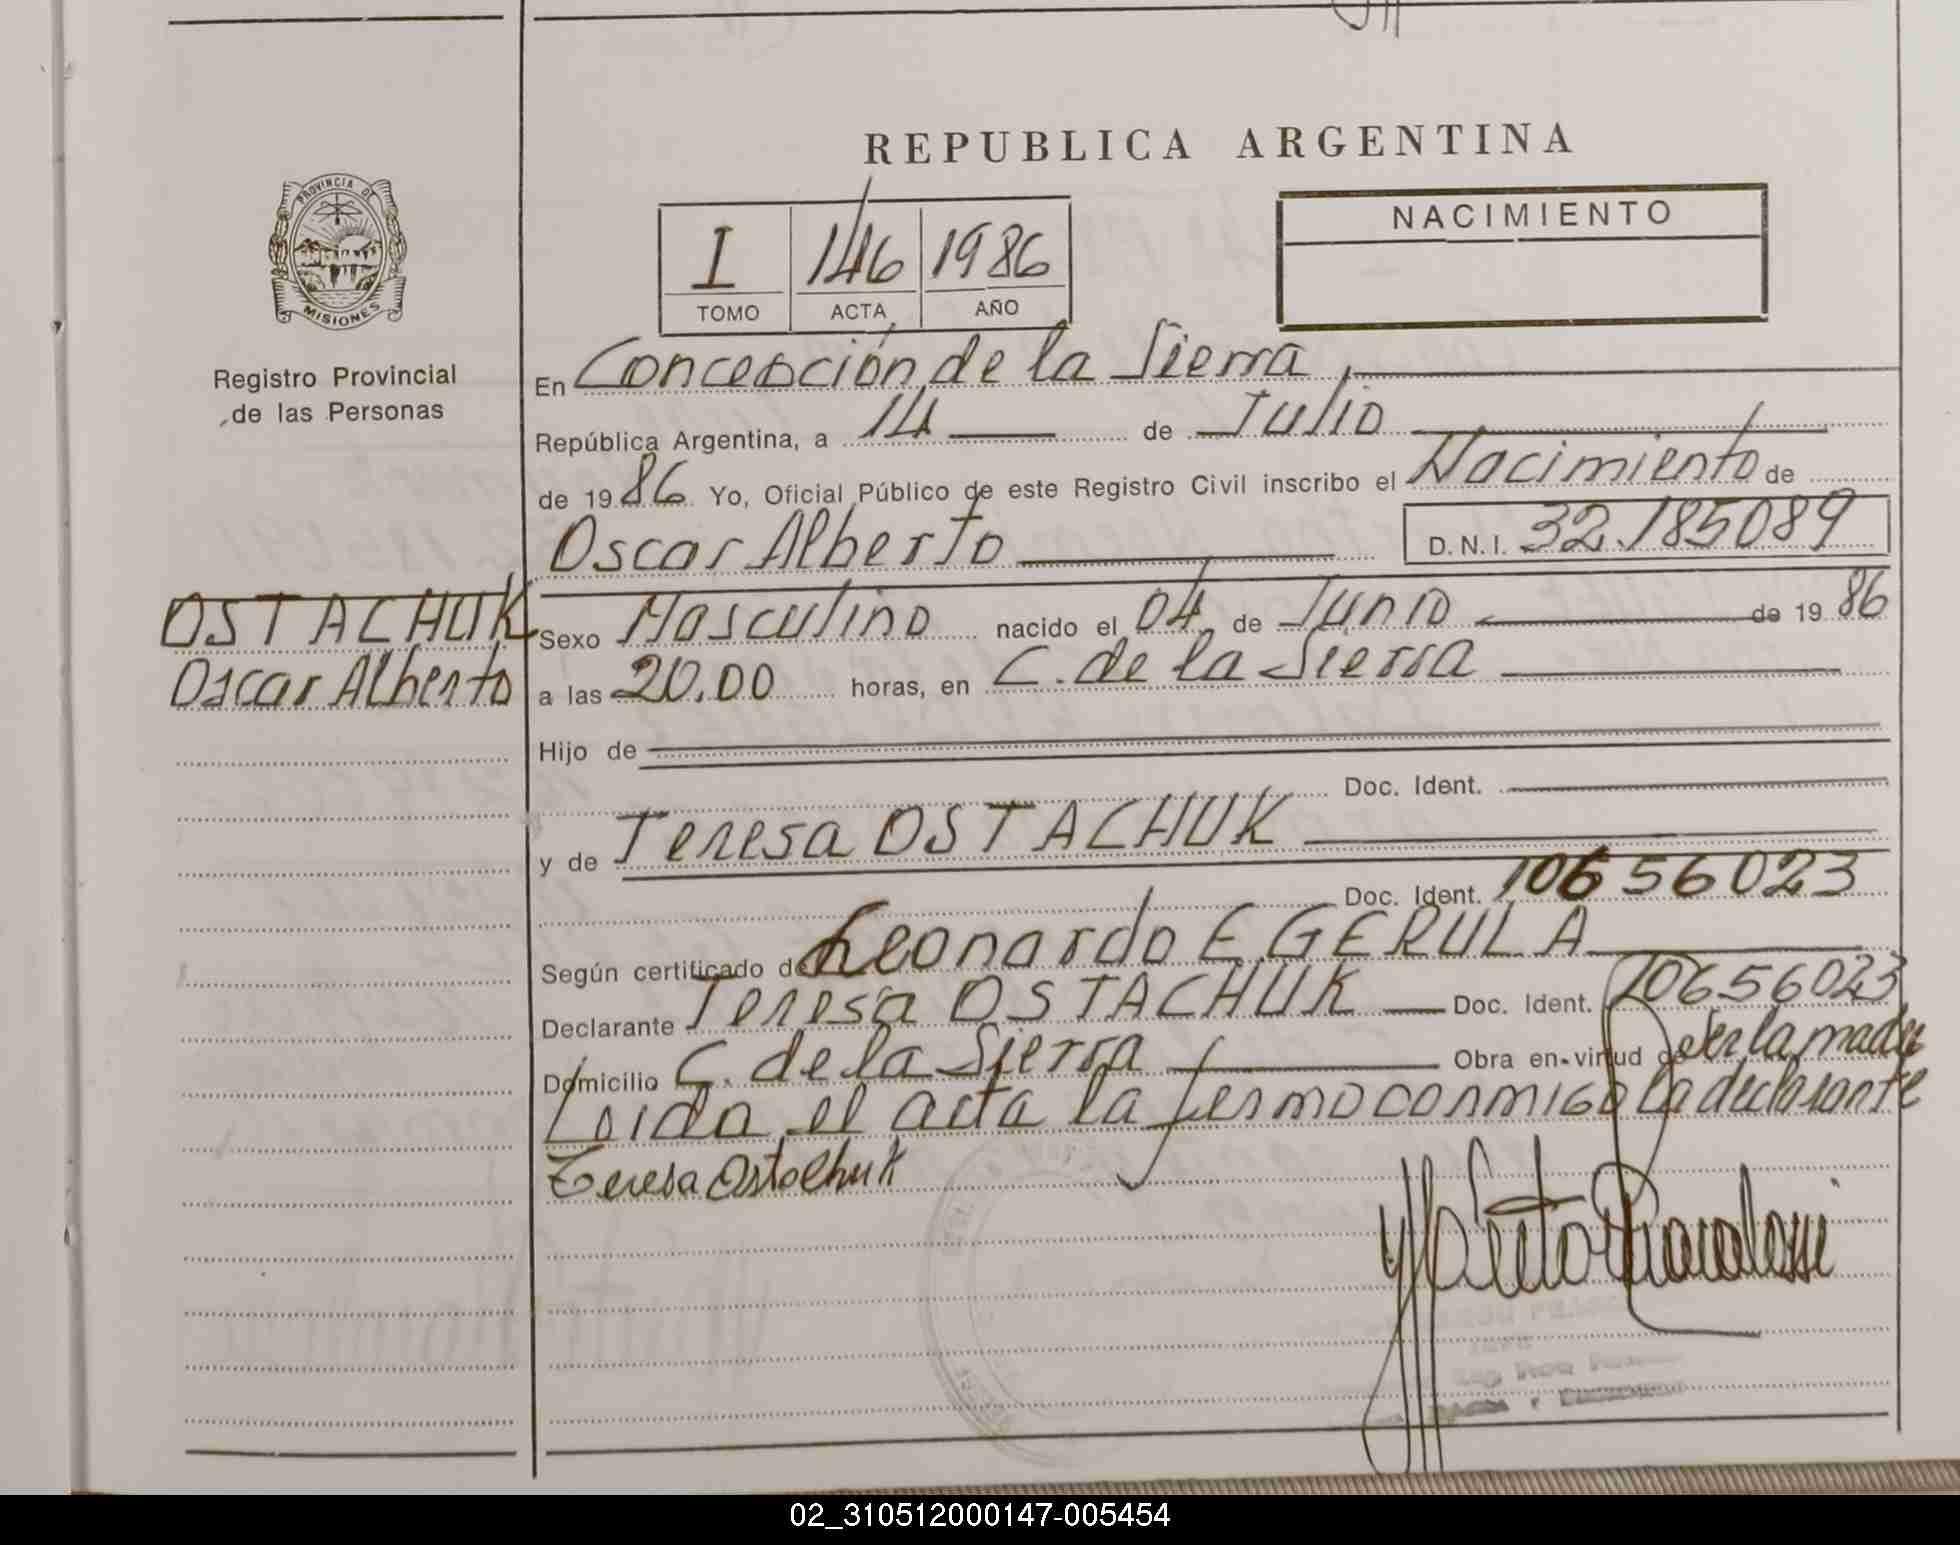 REPUBLICA ARGENTINA
PROVINCIA DE
MISIONES
Registro Provincial
de las Personas
I 146 1986
TOMO ACTA AÑO
NACIMIENTO
En Concepción de la Sierra
República Argentina, a 14 de Julio
de 1986 Yo, Oficial Público de este Registro Civil inscribo el Nacimiento de
Oscar Alberto D.N.I. 32.185089
OSTACHUK
Oscar Alberto
Sexo Masculino nacido el 04 de Junio de 1986
a las 20.00 horas, en C. de la Sierra
Hijo de
Doc. Ident.
y de Teresa OSTACHUK
Doc. Ident. 10656023
Según certificado de Leonardo E GERULA
Declarante Teresa OSTACHUK Doc. Ident. 10656023
Domicilio C. de la Sierra Obra en virtud de ser la madre
Loida el acta la fermo conmigo la declarante
Teresa Ostachuk
02_310512000147-005454